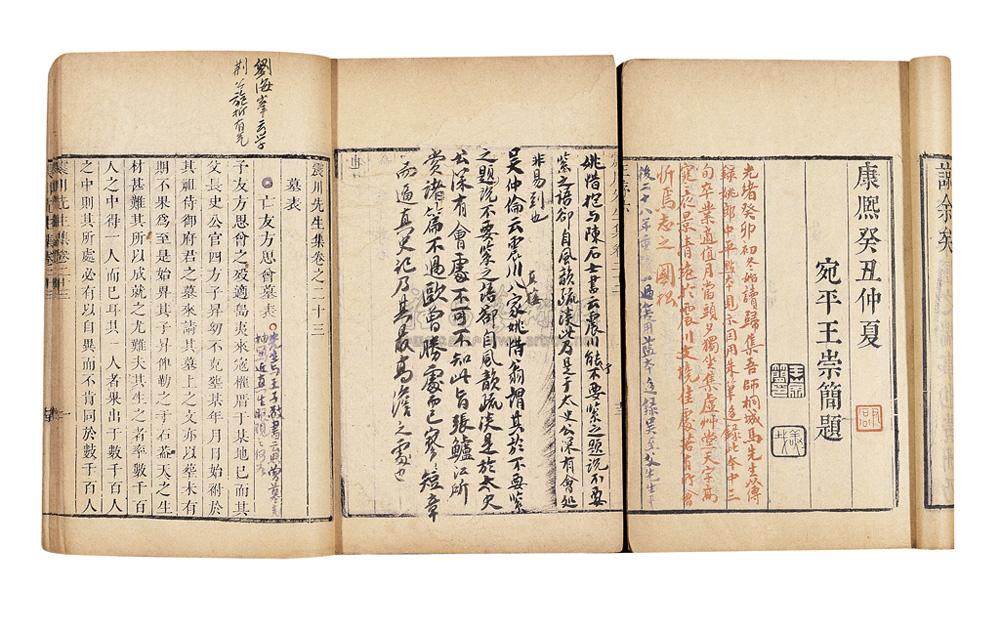 康熙癸丑仲夏
宛平王崇簡題
光緒癸卯初冬始讀歸集吾師桐城馬先生以傳
錄姚郎中平點本見示因用朱筆迻錄此本中三
旬卒業適值月當頭夕獨坐集虛艸堂天宇高
寒夜景清絕於震川文境佳處若有所會
忻焉志之 國松
後二十八年 一過 迻錄吳至父先生
姚惜抱與陳石士書云震川能於不要緊之題說不要
緊之語卻自風韻疏淡此乃是于太史公深有會処
非易到也
吳仲倫云震川八家姚惜翁謂其於不要緊
之題說不要緊之語卻自風韻疏淡是於太史
公深有會處不可不知此旨張鱸江所
賞諸篇不過歐曾勝處而已寥寥短章
而逼真史記乃其最高澹之處也
劉海峯云學
荆公能折有光
震川先生集卷之二十三
墓表
亡友方思曾墓表
先生與王子敬書云思曾墓表
子友方思曾之歿適島夷來寇權厝于某地已而其
父長史公官四方子昇幼不克塟某年月日始祔於
其祖侍御府君之墓來請其墓上之文亦以葬未有
期不果爲至是始畀其子昇俾勒之于石蓋天之生
材甚難其所以成就之尤難夫其生之者率數千百
人之中得一人而已耳其一人者果出于數千百人
之中則其所處必有以自異而不肯同於數千百人